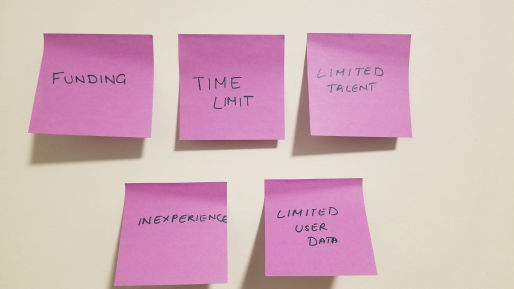 FUNDING
TIME
LIMIT
LIMITED
TALENT
INEXPERIENCE
LIMITED
USER
DATA